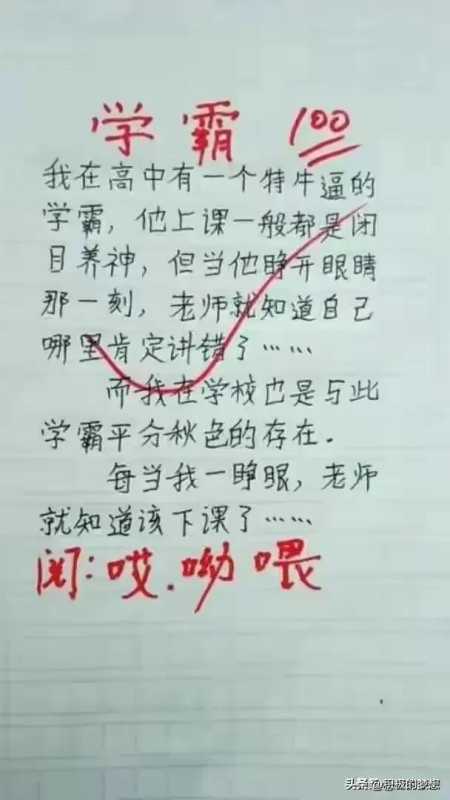 学霸 100
我在高中有一个特牛逼的
学霸，他上课一般都是闭
目养神，但当他睁开眼睛
那一刻，老师就知道自己
哪里肯定讲错了……
而我在学校也是与此
学霸平分秋色的存在．
每当我一睁眼，老师
就知道该下课了……
阅：哎．呦喂
头条@积极的梦想